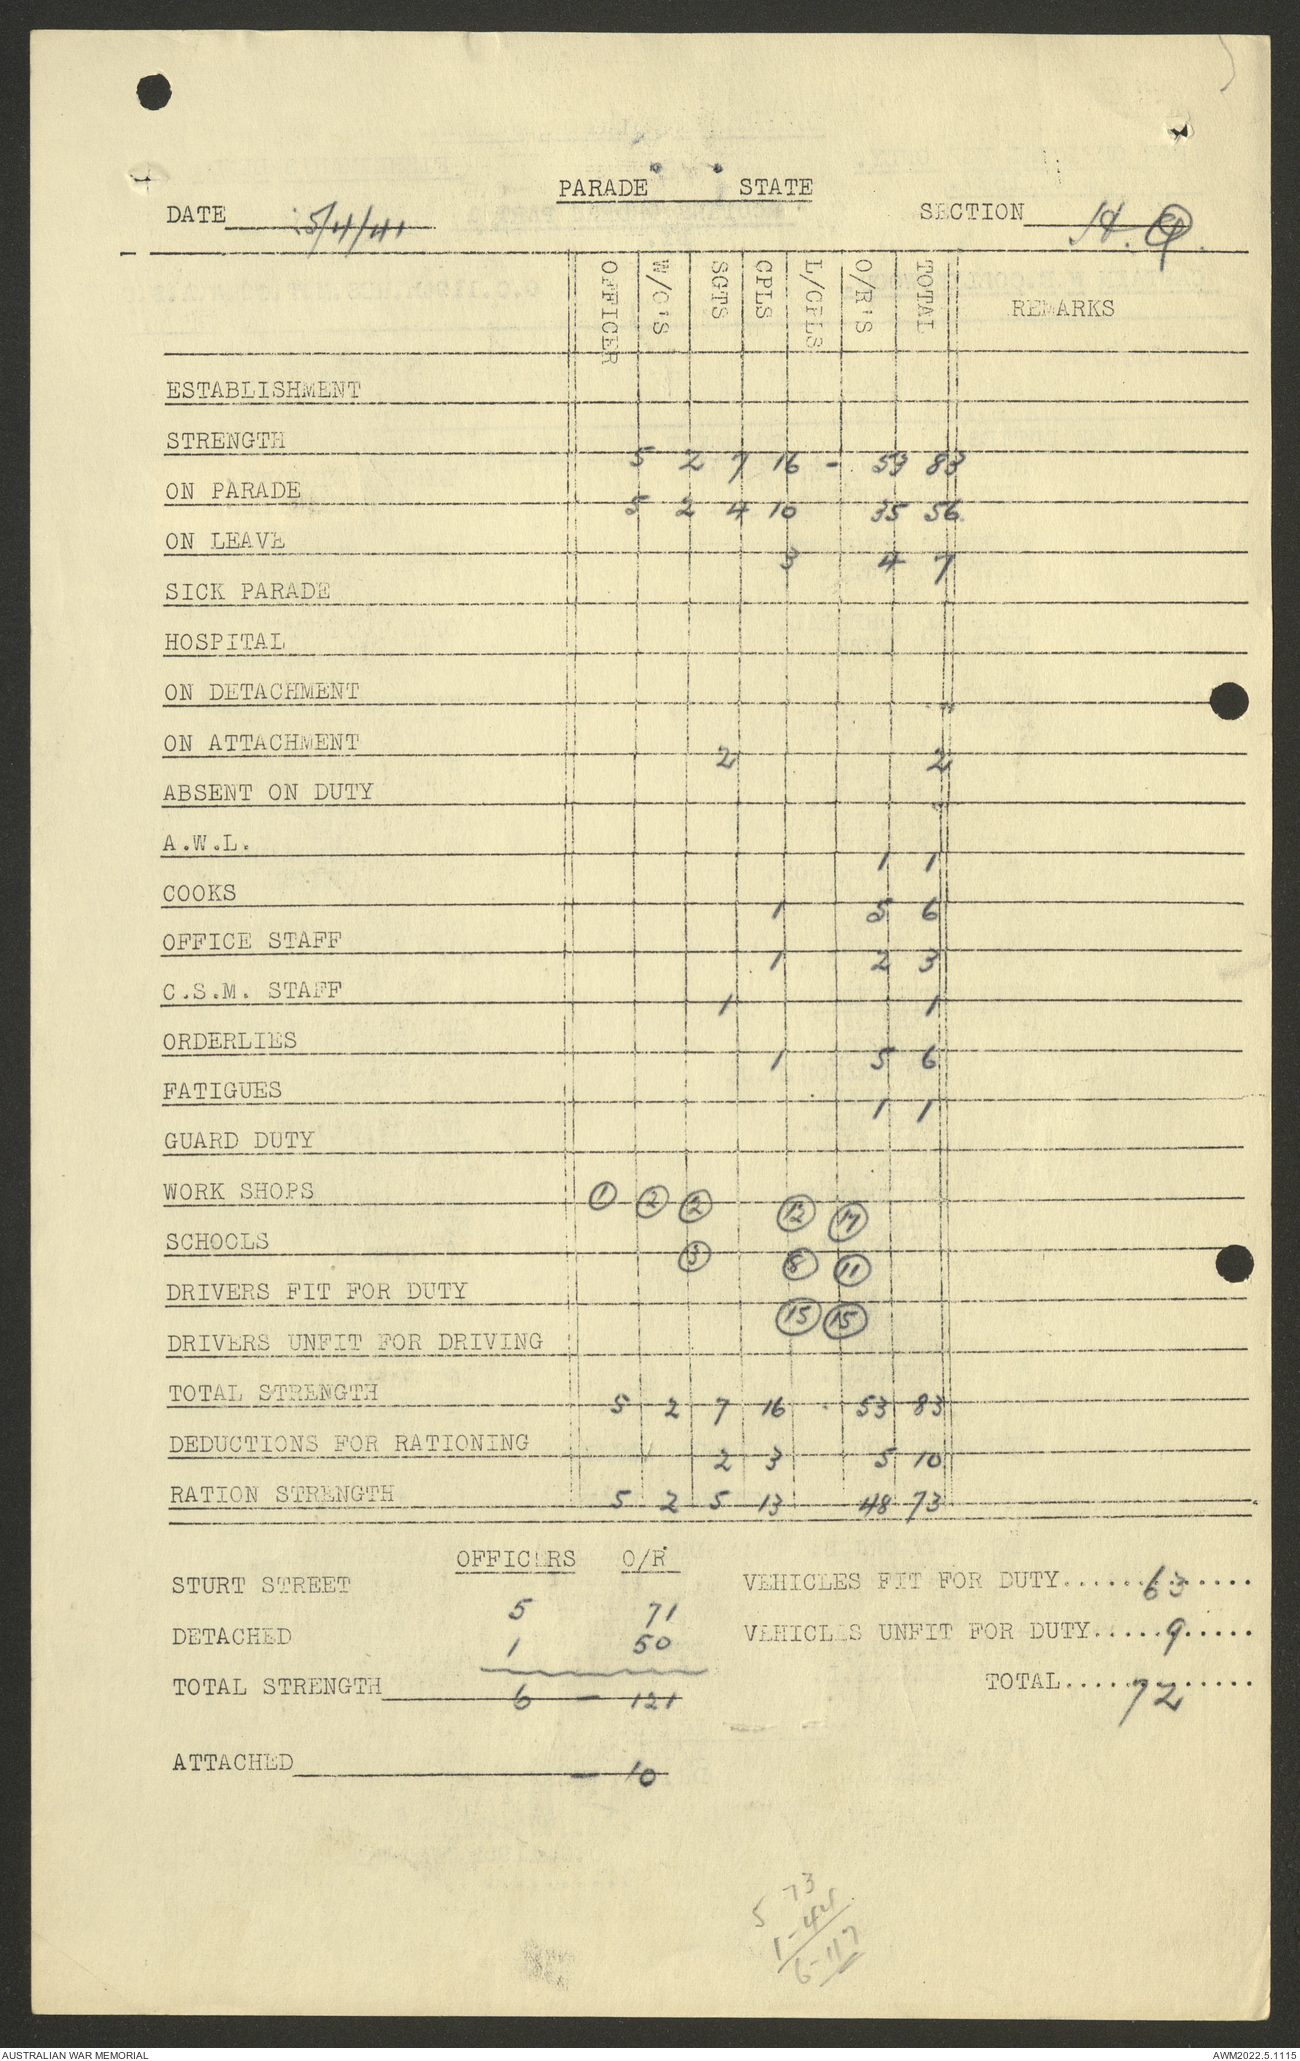 PARADE " " STATE
DATE 5/4/41 SECTION H.Q.
OFFICER W/O'S SGTS CPLS L/CPLS O/R'S TOTAL REMARKS
ESTABLISHMENT
STRENGTH 5 2 7 16 - 53 83
ON PARADE 5 2 4 10 35 56
ON LEAVE 3 4 7
SICK PARADE
HOSPITAL
ON DETACHMENT
ON ATTACHMENT 2 2
ABSENT ON DUTY
A.W.L. 1 1
COOKS 1 5 6
OFFICE STAFF 1 2 3
C.S.M. STAFF 1 1
ORDERLIES 1 5 6
FATIGUES 1 1
GUARD DUTY
WORK SHOPS 1 2 2 12 17
SCHOOLS 3 8 11
DRIVERS FIT FOR DUTY 15 15
DRIVERS UNFIT FOR DRIVING
TOTAL STRENGTH 5 2 7 16 - 53 83
DEDUCTIONS FOR RATIONING 2 3 5 10
RATION STRENGTH 5 2 5 13 48 73
OFFICERS O/R
STURT STREET 5 71 VEHICLES FIT FOR DUTY......63......
DETACHED 1 50 VEHICLES UNFIT FOR DUTY.....9.....
TOTAL STRENGTH 6 - 121 TOTAL.....72.....
ATTACHED - 10
5 73
1-44
6-117
AUSTRALIAN WAR MEMORIAL AWM2022.5.1115